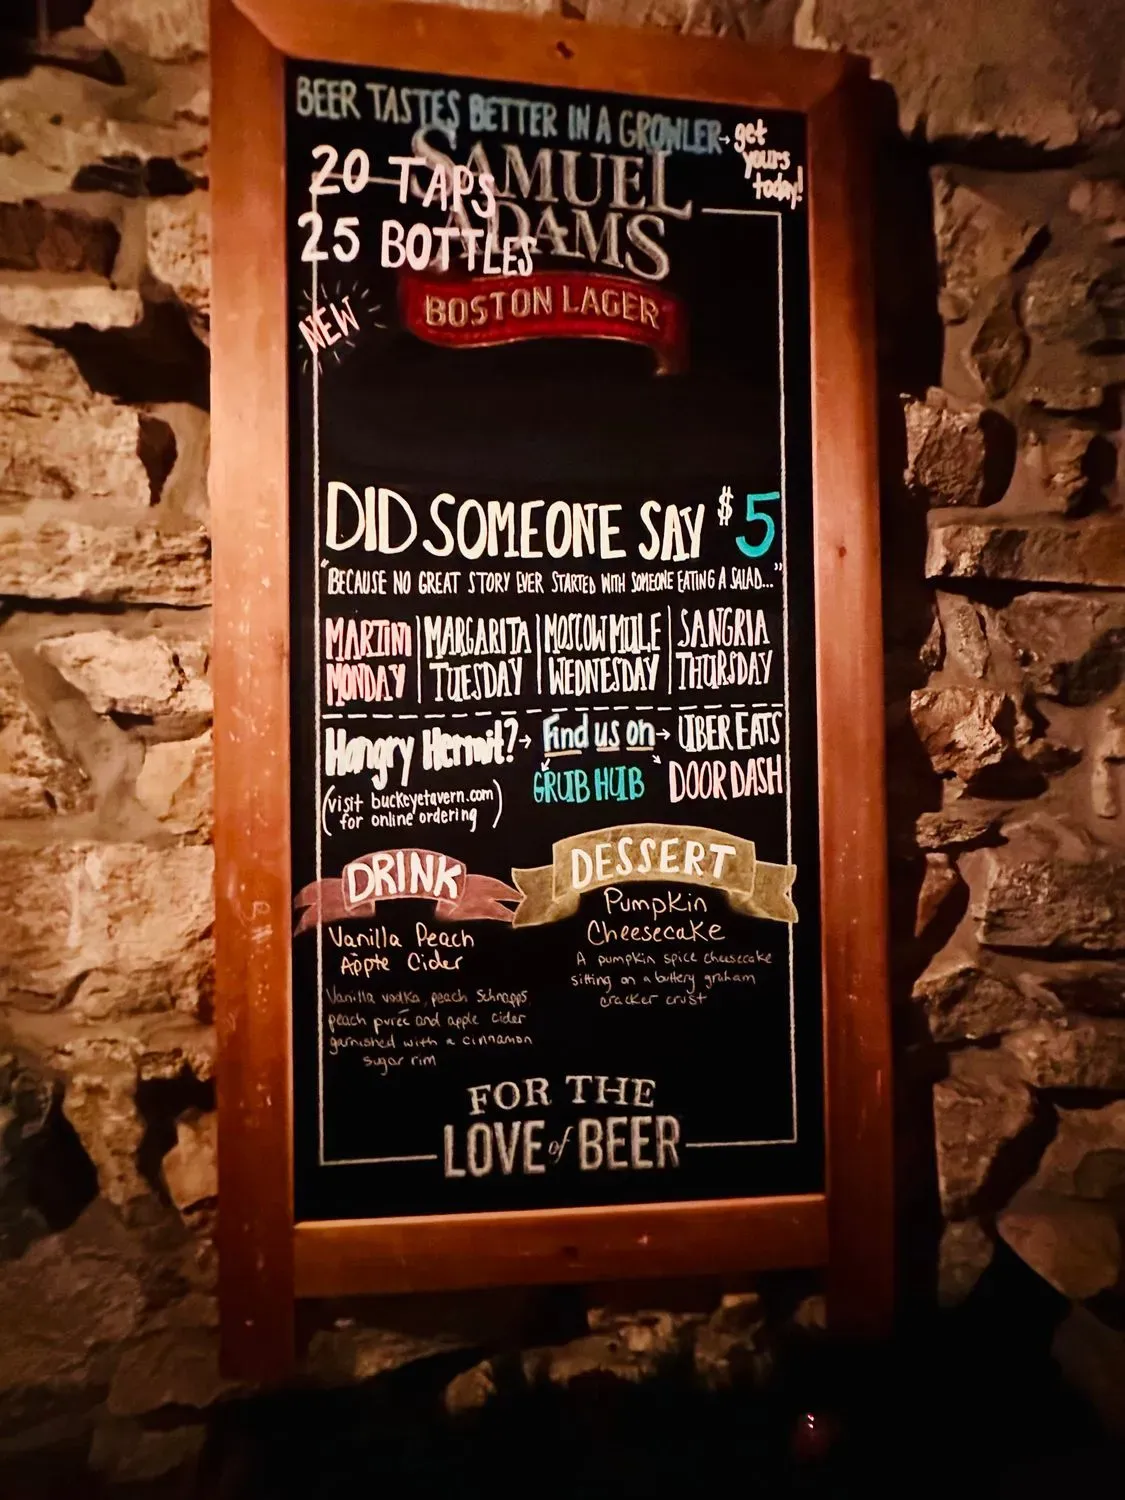 BEER TASTES BETTER IN A GROWLER→ get yours today!
SAMUEL
20 TAPS
ADAMS
25 BOTTLES
BOSTON LAGER
NEW
DID SOMEONE SAY $5
"BECAUSE NO GREAT STORY EVER STARTED WITH SOMEONE EATING A SALAD..."
MARTINI MONDAY | MARGARITA TUESDAY | MOSCOW MULE WEDNESDAY | SANGRIA THURSDAY
Hangry Hermit? → Find us on → UBER EATS
GRUB HUB DOOR DASH
(visit buckeyetavern.com
for online ordering)
DRINK
Vanilla Peach
Apple Cider
Vanilla vodka, peach Schnapps,
peach purée and apple cider
garnished with a cinnamon
sugar rim
DESSERT
Pumpkin
Cheesecake
A pumpkin spice cheesecake
sitting on a buttery graham
cracker crust
FOR THE
LOVE of BEER